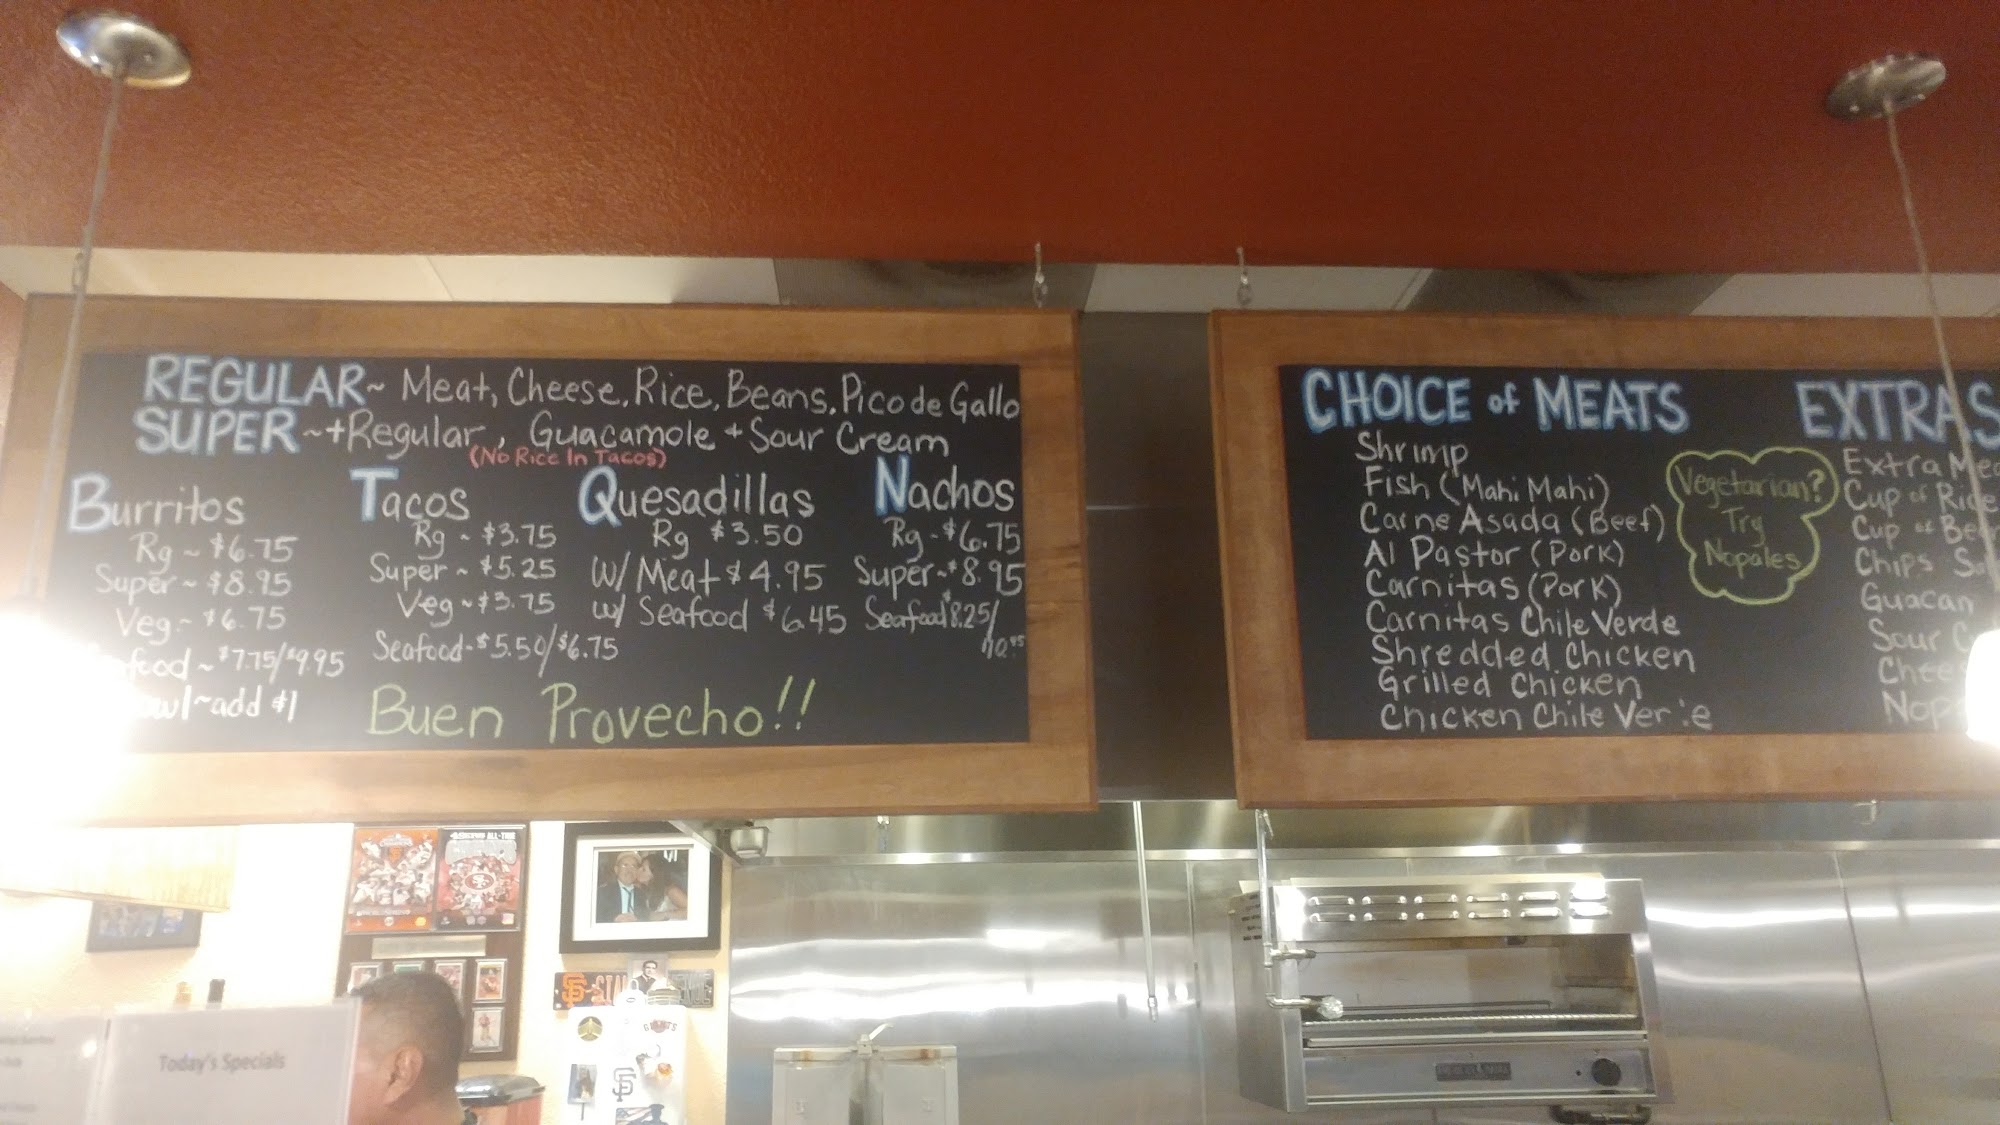 REGULAR~ Meat, Cheese, Rice, Beans, Pico de Gallo
SUPER ~+Regular, Guacamole + Sour Cream
(No Rice In Tacos)
Burritos
Rg ~ $6.75
Super ~ $8.95
Veg ~ $6.75
food ~ $7.75/$9.95
wl ~ add $1
Tacos
Rg ~ $3.75
Super ~ $5.25
Veg ~ $3.75
Seafood - $5.50/$6.75
Quesadillas
Rg $3.50
W/ Meat $4.95
w/ Seafood $6.45
Nachos
Rg - $6.75
Super ~ $8.95
Seafood $8.25/
10.95
Buen Provecho!!
CHOICE of MEATS
Shrimp
Fish (Mahi Mahi)
Carne Asada (Beef)
Al Pastor (Pork)
Carnitas (Pork)
Carnitas Chile Verde
Shredded Chicken
Grilled Chicken
Chicken Chile Ver e
Vegetarian?
Try
Nopales
EXTRAS
Extra Mea
Cup of Rice
Cup of Bea
Chips Sa
Guacan
Sour C
Chee
Nop
ALL-TIME
Today's Specials
SF
GIANTS
SF